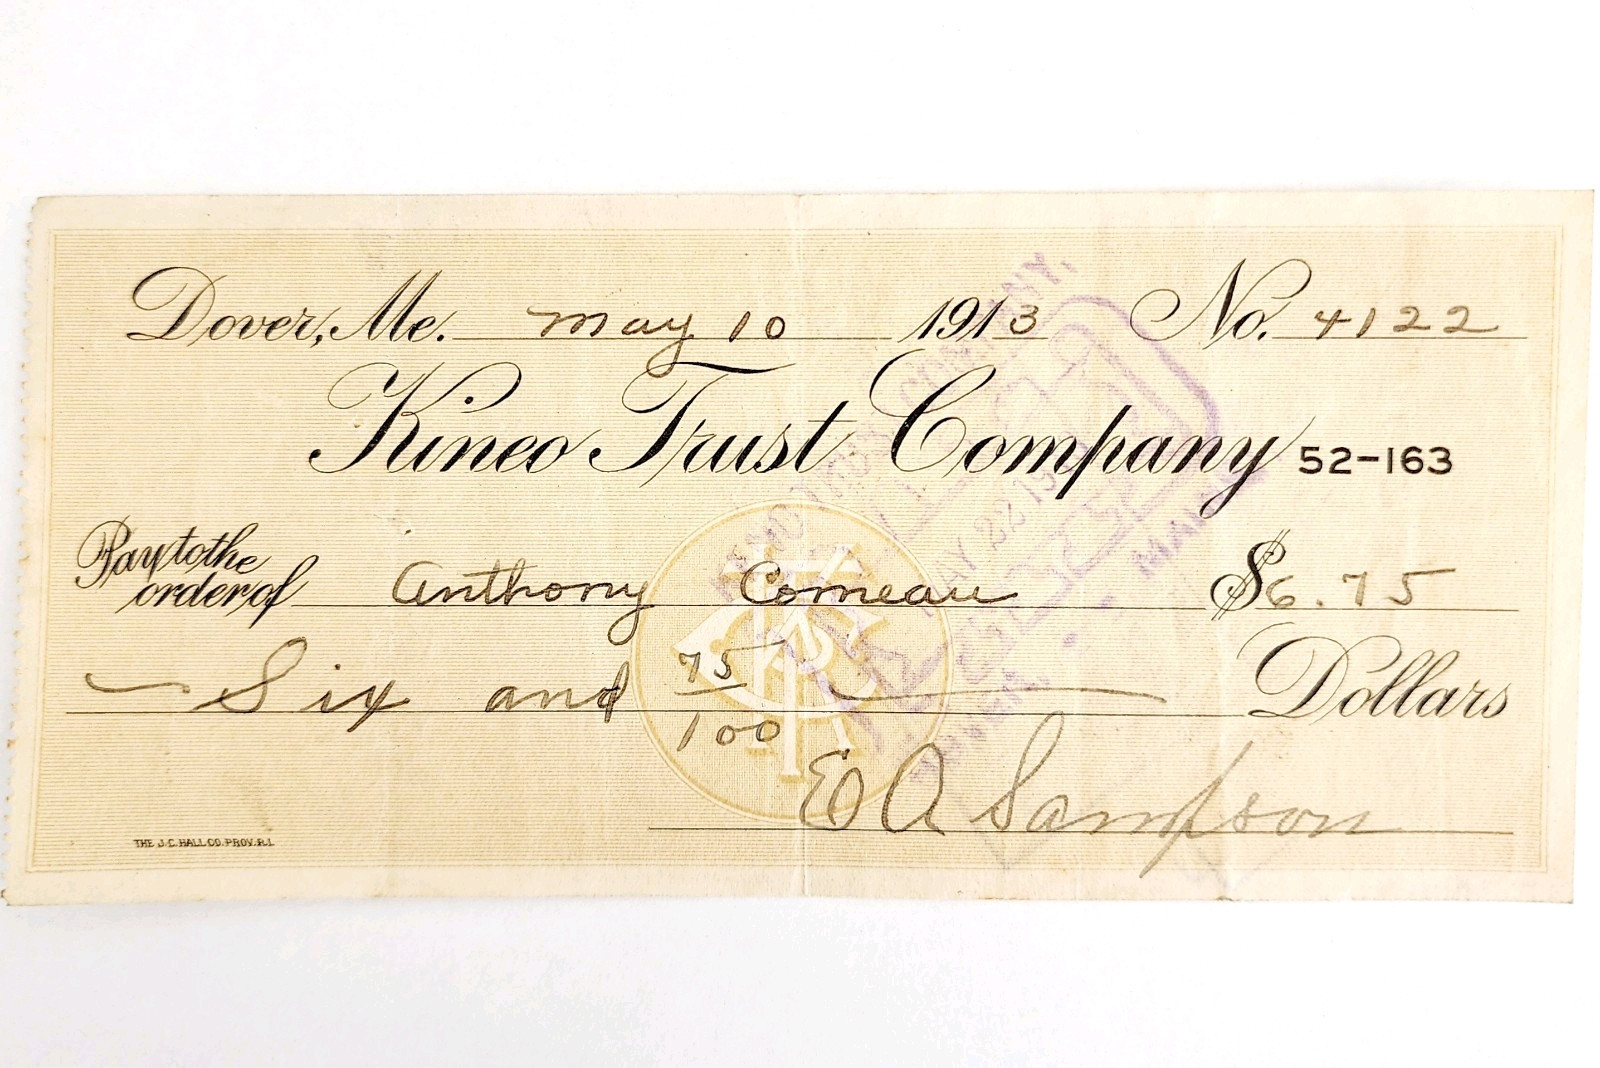 Dover, Me. May 10 1913 No. 4122
Kineo Trust Company 52-163
Pay to the
order of Anthony Comeau $6.75
Six and 75/100 Dollars
E A Sampson
THE J.C. HALL CO. PROV. R.I.
KINEO TRUST COMPANY,
MAY 22 19
DOVER, MAINE